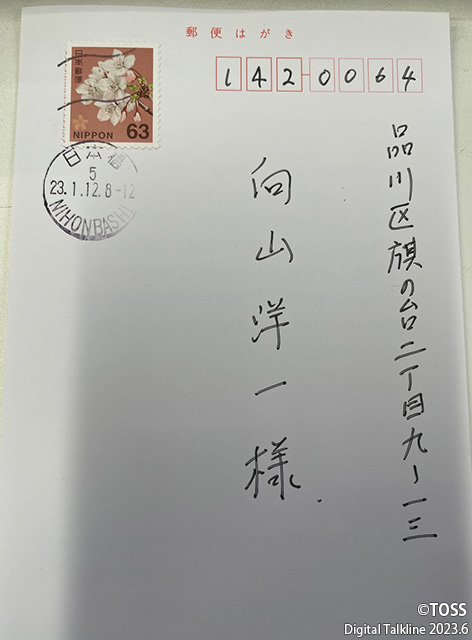 郵便はがき
142-0064
日本郵便
NIPPON 63
日本橋
5
23.1.12.8-12
NIHONBASHI
品川区旗の台二丁目九ー一三
向山洋一様
©TOSS
Digital Talkline 2023.6